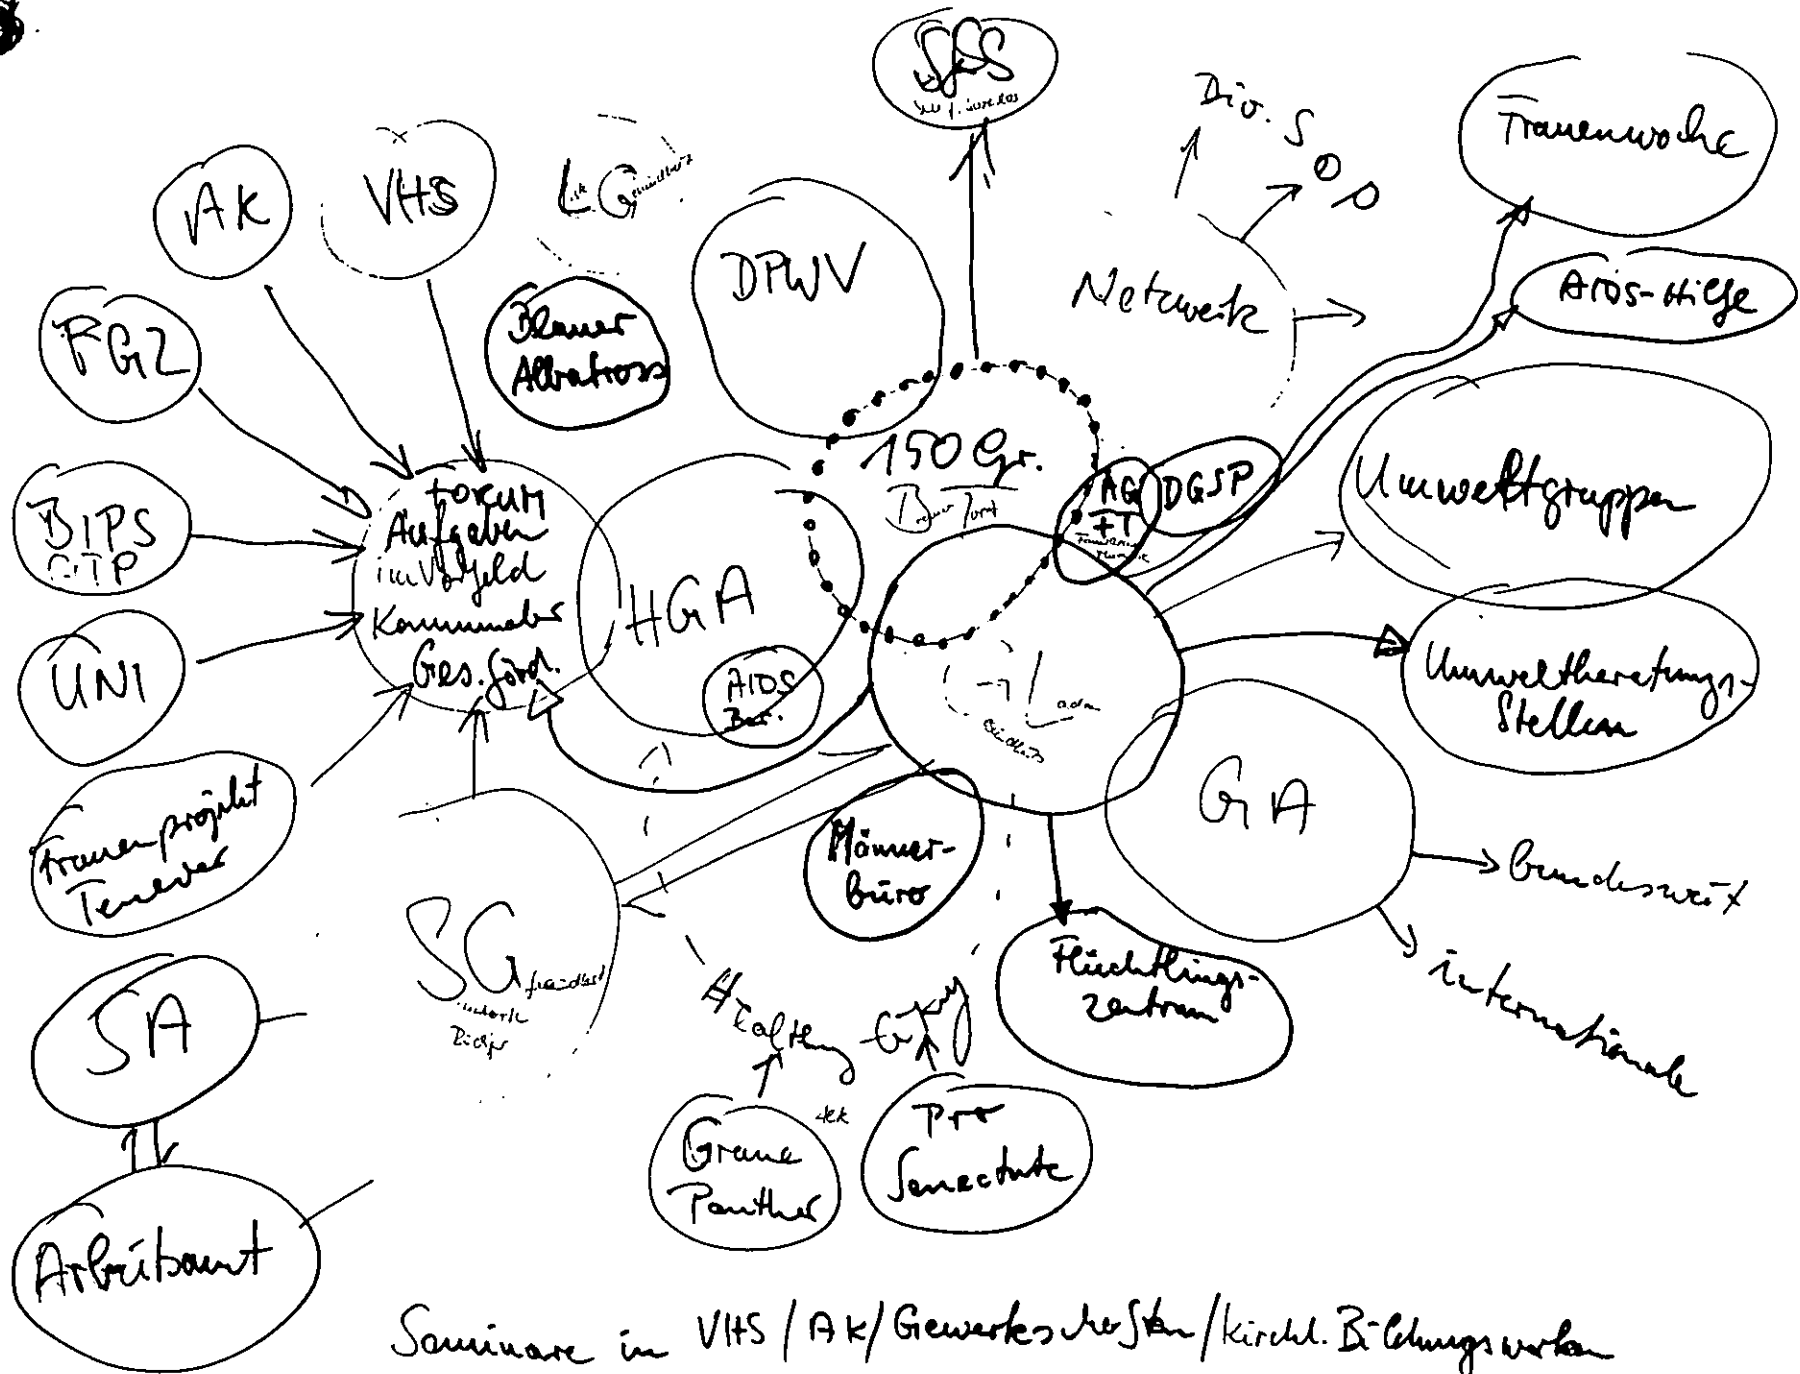 SfS
Div. S
Frauenwoche
AK
VHS
LG
DPWV
Netzwerk
AIDS-Hilfe
FGZ
Blauer
Albatross
150 Gr.
AG
FT
DGSP
Umweltgruppen
BIPS
FORUM
Aufgaben
im Vorfeld
Kommunaler
Ges.förd.
HGA
AIDS
Ber.
UNI
Laden
Umweltberatungs-
Stellen
GA
Frauenprojekt
Tenever
Männer-
büro
bundesweit
SG
Flüchtlings-
zentrum
internationale
SA
Graue
Panther
Pro
Senectute
Arbeitsamt
Seminare in VHS / AK / Gewerkschaften / kirchl. Bildungswerken